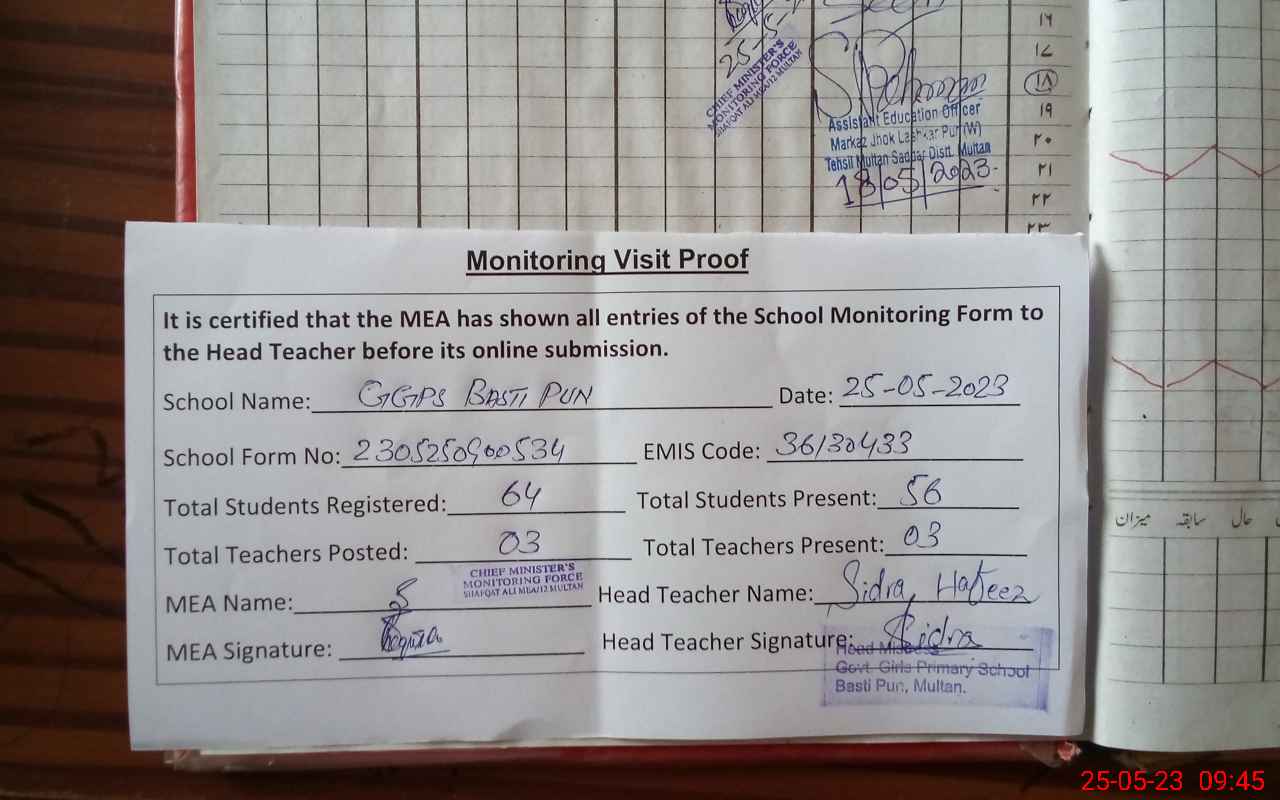 25-5-
CHIEF MINISTER'S
MONITORING FORCE
SHAFQAT ALI MEA/12 MULTAN
Assistant Education Officer
Markaz Jhok Lashkar Pur (W)
Tehsil Multan Saddar Distt. Multan
18/05/2023
۱۶
۱۷
۱۸
۱۹
۲۰
۲۱
۲۲
۲۳
Monitoring Visit Proof
It is certified that the MEA has shown all entries of the School Monitoring Form to
the Head Teacher before its online submission.
School Name: GGPS BASTI PUN Date: 25-05-2023
School Form No: 2305250900534 EMIS Code: 36130433
Total Students Registered: 64 Total Students Present: 56
Total Teachers Posted: 03 Total Teachers Present: 03
CHIEF MINISTER'S
MONITORING FORCE
SHAFQAT ALI MEA/12 MULTAN
MEA Name: Head Teacher Name: Sidra Hafeez
MEA Signature: Head Teacher Signature: Sidra
Head Mistress
Govt. Girls Primary School
Basti Pun, Multan.
میزان سابقہ حال
25-05-23 09:45